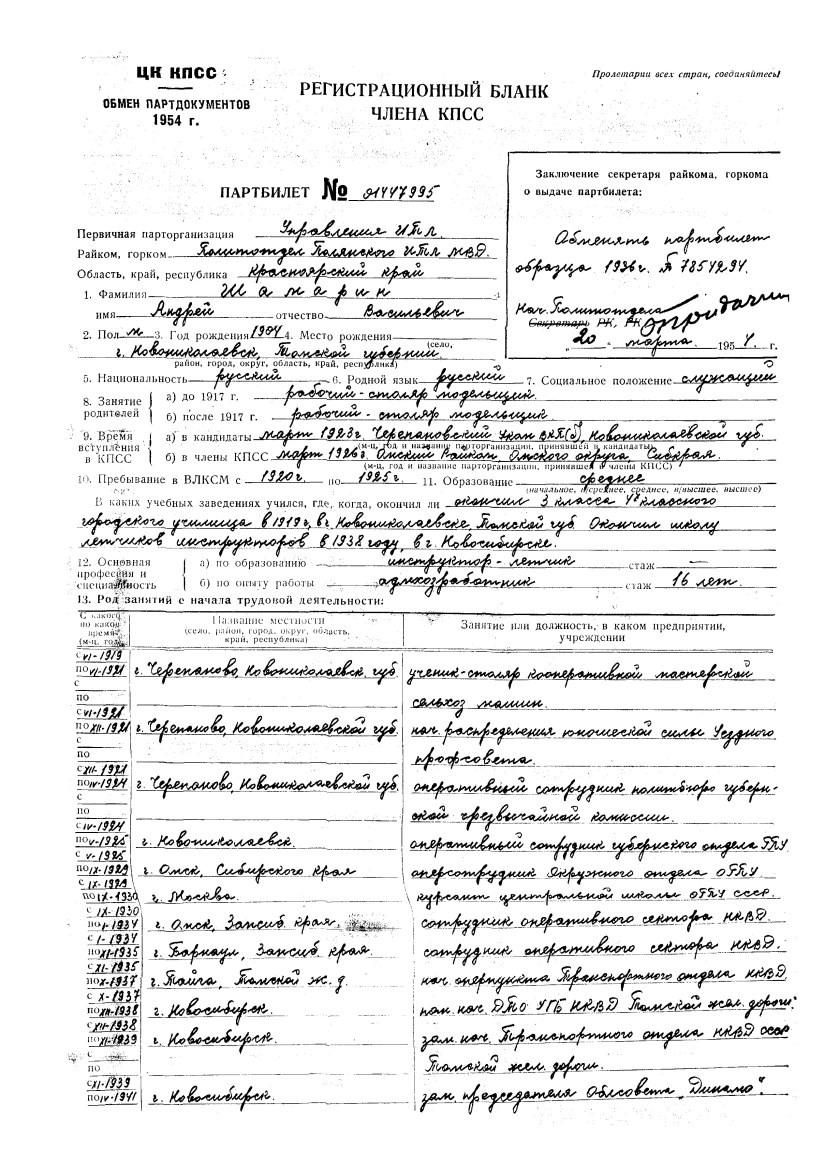 ЦК КПСС
ОБМЕН ПАРТДОКУМЕНТОВ
1954 г.
Пролетарии всех стран, соединяйтесь!
РЕГИСТРАЦИОННЫЙ БЛАНК
ЧЛЕНА КПСС
ПАРТБИЛЕТ № 01447995
Заключение секретаря райкома, горкома
о выдаче партбилета:
Обменять партбилет
образца 1936 г. № 7854294.
Нач. Политотдела
Секретарь РК, ГК
"20" марта 1954 г.
Первичная парторганизация Управления ИТЛ
Райком, горком Политотдел Полянского ИТЛ МВД.
Область, край, республика Красноярский край
1. Фамилия Шамарин
имя Андрей отчество Васильевич
2. Пол м 3. Год рождения 1904 4. Место рождения
(село,
г. Новониколаевск, Томской губернии
район, город, округ, область, край, республика)
5. Национальность русский 6. Родной язык русский 7. Социальное положение служащий
8. Занятие родителей
а) до 1917 г. рабочий-столяр модельщик.
б) после 1917 г. рабочий-столяр модельщик.
9. Время вступления в КПСС
а) в кандидаты март 1923 г. Черепановский Уком ВКП(б), Новониколаевской губ.
(м-ц, год и название парторганизации, принявшей в кандидаты)
б) в члены КПСС март 1926 г. Омский Райком, Омского округа, Сибкрая.
(м-ц, год и название парторганизации, принявшей в члены КПСС)
10. Пребывание в ВЛКСМ с 1920 г. по 1925 г. 11. Образование среднее
(начальное, н/среднее, среднее, н/высшее, высшее)
В каких учебных заведениях учился, где, когда, окончил ли окончил 3 класса 4х классного
городского училища в 1919 г, в г. Новониколаевске, Томской губ. Окончил школу
летчиков инструкторов в 1938 году, в г. Новосибирске.
12. Основная профессия и специальность
а) по образованию инструктор-летчик стаж —
б) по опыту работы админхозработник стаж 16 лет.
13. Род занятий с начала трудовой деятельности:
С какого по какое время (м-ц, год)
Название местности
(село, район, город, округ, область,
край, республика)
Занятие или должность, в каком предприятии,
учреждении
с VI-1919
по VI-1921 г. Черепаново, Новониколаевск. губ. ученик-столяр кооперативной мастерской
с
по сельхоз машин.
с VI-1921
по XII-1921 г. Черепаново, Новониколаевской губ. нач. распределения юношеской силы Уездного
с
по профсовета.
с XII-1921
по IV-1924 г. Черепаново, Новониколаевской губ. оперативный сотрудник политбюро губерн-
с
по ской чрезвычайной комиссии.
с IV-1924
по V-1925 г. Новониколаевск. оперативный сотрудник губернского отдела ГПУ
с V-1925
по IX-1929 г. Омск, Сибирского края оперсотрудник Окружного отдела ОГПУ.
с IX-1929
по IX-1930 г. Москва. курсант центральной школы ОГПУ СССР.
с IX-1930
по I-1934 г. Омск, Запсиб. края. сотрудник оперативного сектора НКВД.
с I-1934
по XI-1935 г. Барнаул, Запсиб. края. сотрудник оперативного сектора НКВД.
с XI-1935
по X-1937 г. Тайга, Томской ж. д. нач. оперпункта Транспортного отдела НКВД
с X-1937
по XII-1938 г. Новосибирск. пом. нач. ДТО УГБ НКВД Томской жел. дороги.
с XII-1938
по XI-1939 г. Новосибирск. зам. нач. Транспортного отдела НКВД СССР
с
по Томской жел. дороги.
с XI-1939
по IV-1941 г. Новосибирск. зам. председателя Облсовета „Динамо".